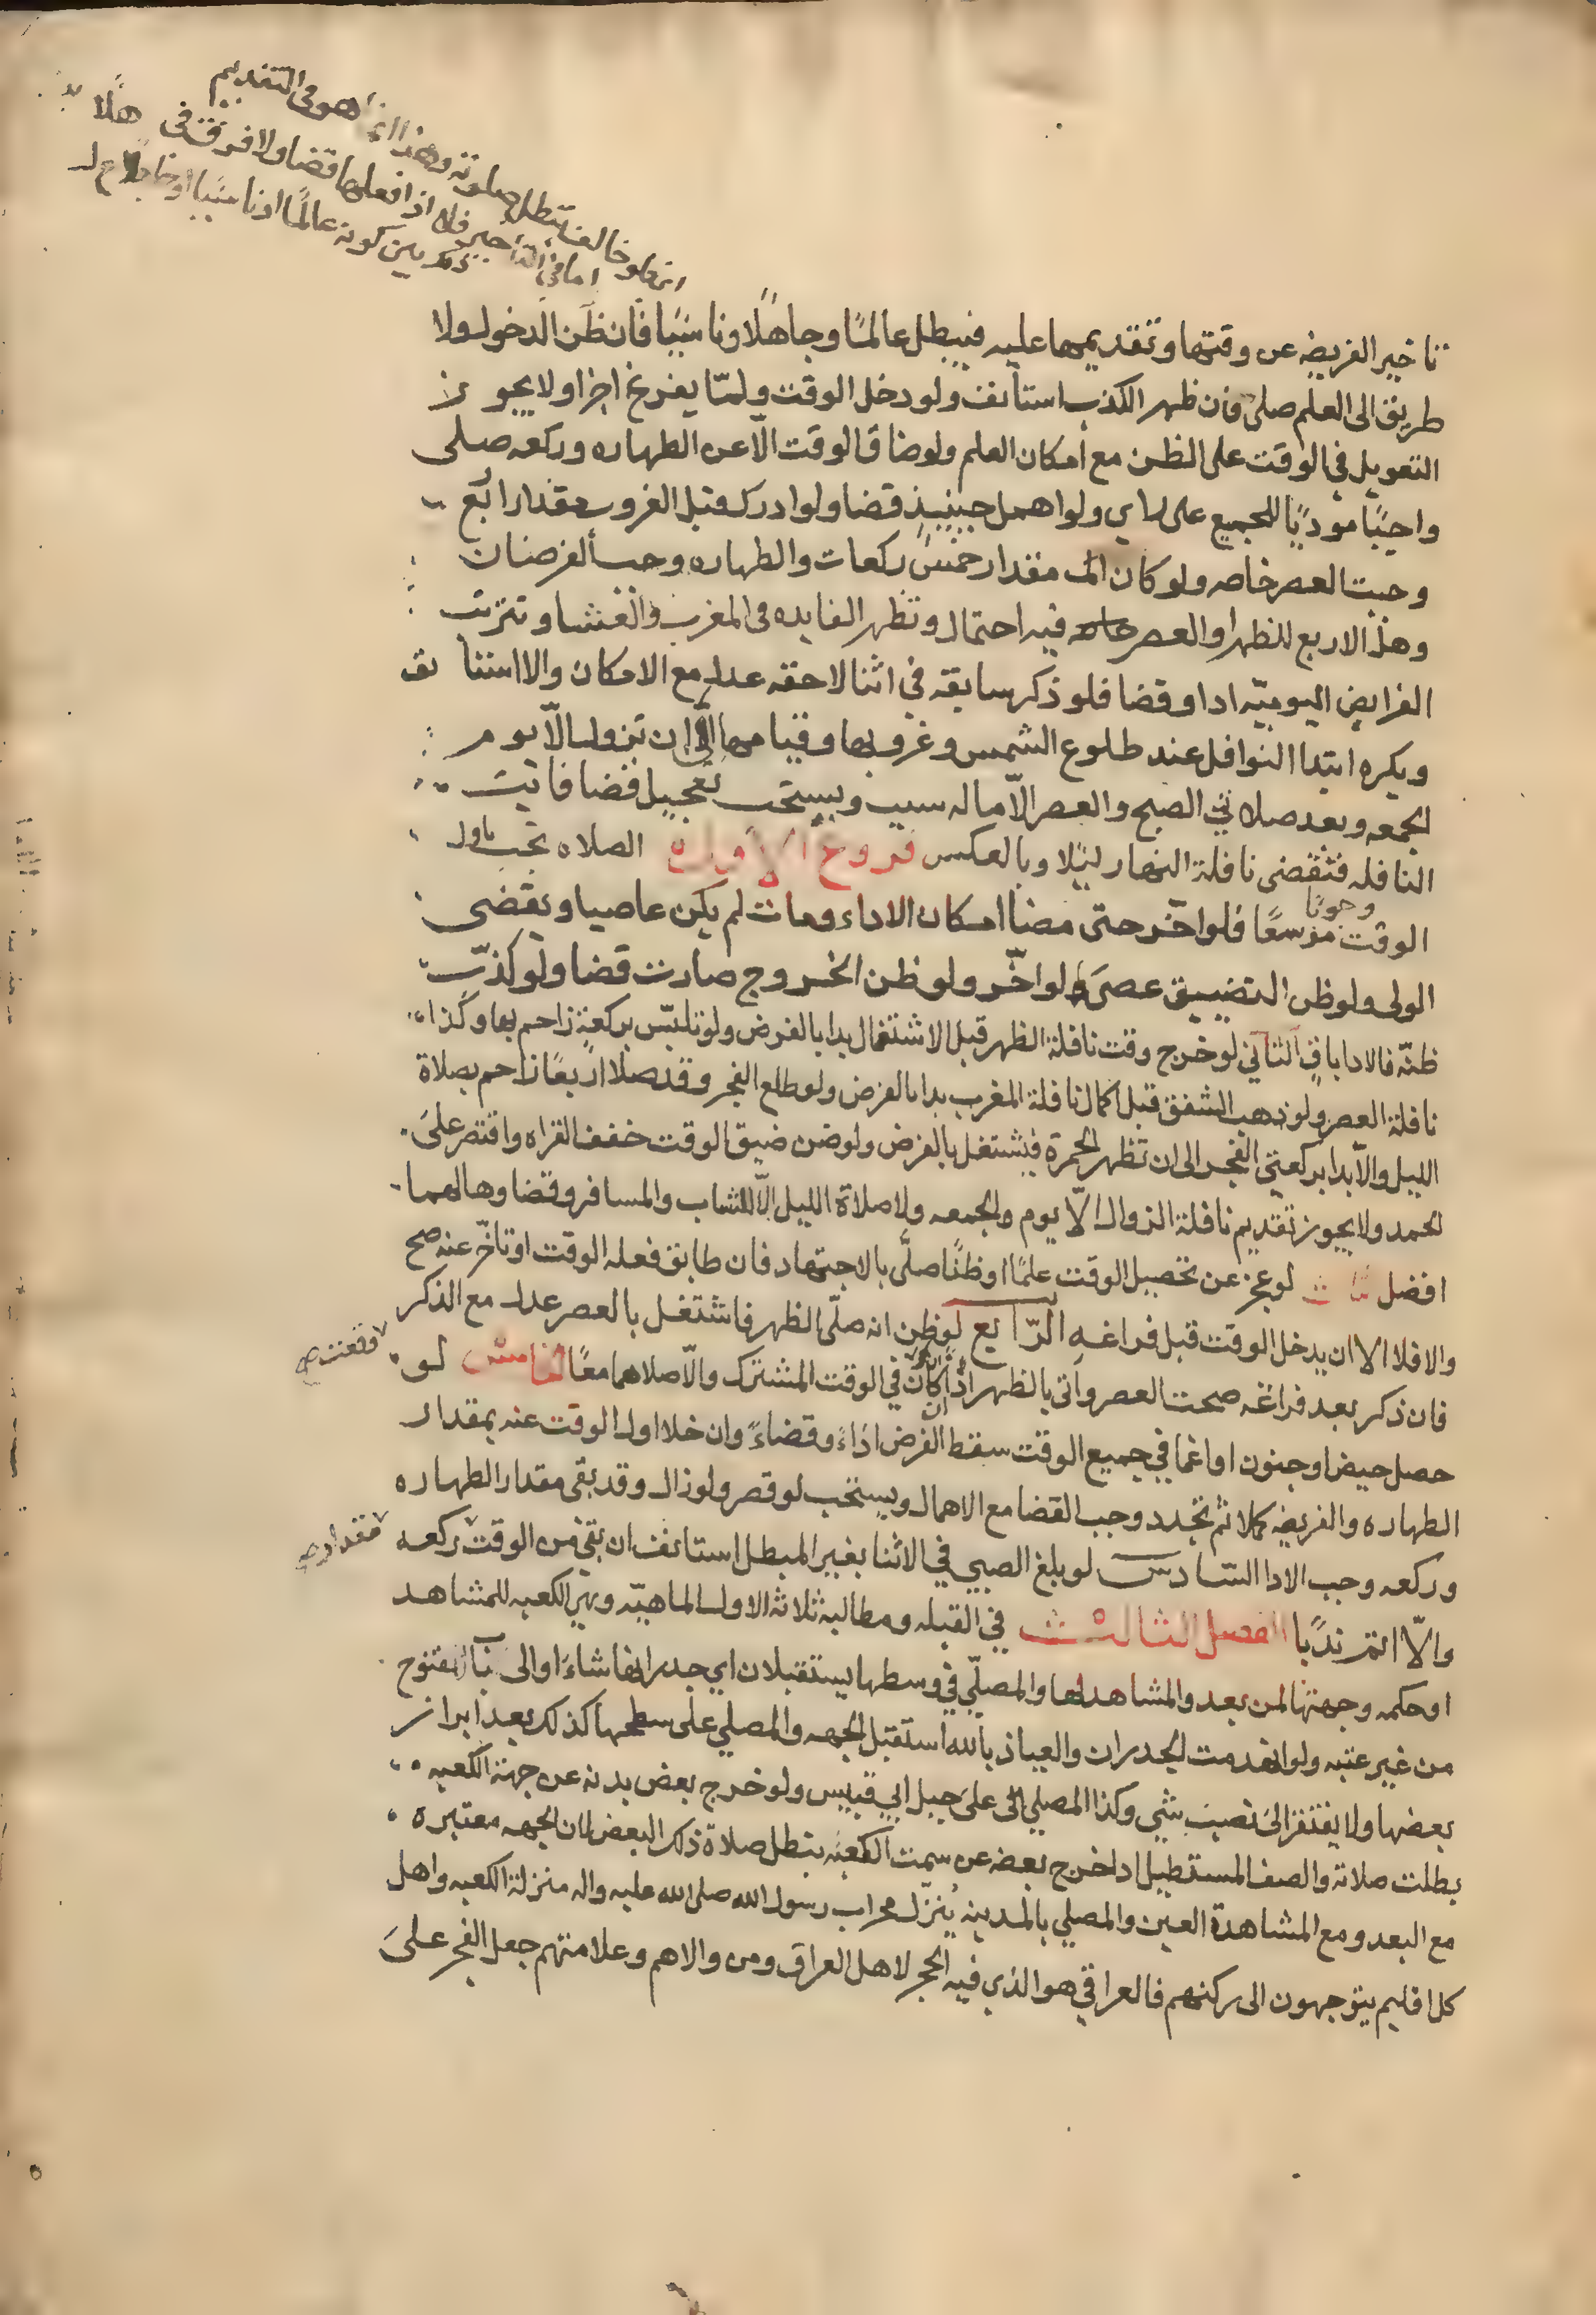 اى فلو خالف تبطل صلوته وهذا انما هو فى التقديم
اما فى التاخير فلا اذ افعلها قضا ولا فرق فى هذا
بين كونه عالما او ناسيا او جاهلا
تاخير الفريضه عن وقتها وتقديمها عليه فيبطل عالمًا وجاهلًا وناسيًا فان ظن الدخول ولا
طريق الى العلم صلى فان ظهر الكذب استأنف ولو دخل الوقت ولمّا يفرغ اجزا ولا يجوز
التعويل في الوقت على الظن مع امكان العلم ولو ضاق الوقت الّا عن الطهاره وركعه صلى
واجبًا موديًا للجميع على راي ولو اهمل حينيذٍ قضا ولو ادرك قبل الغروب مقدار اربع
وجبت العصر خاصه ولو كان مقدار خمس ركعات والطهاره وجب الفرضان
وهذ الاربع للظهر او العصر فيه احتمال وتظهر الفايده فى المغرب والعشا وتترتب
الفرايض اليوميّه ادا وقضا فلو ذكر سابقه في اثنا لاحقه عدل مع الامكان والا استانف
ويكره ابتدا النوافل عند طلوع الشمس وغروبها وقيامها الى ان تزول الّا يوم
الجمعه وبعد صلاتي الصبح والعصر الّا ما له سبب ويستحب تعجيل قضا فائت
النافله فتقضى نافلة النهار ليلا وبالعكس فروع الاول الصلاه تجب باول
الوقت وجوبًا موسعًا فلو اخّر حتى مضا امكان الاداء ومات لم يكن عاصيا ويقضى
الولى ولو ظن التضييق عصى لو اخّر ولو ظن الخروج صارت قضا ولو كذب
ظنّه فالادا باقٍ الثاني لو خرج وقت نافلة الظهر قبل الاشتغال بدا بالفرض ولو تلبّس بركعةٍ زاحم بها وكذا
نافلة العصر ولو ذهب الشفق قبل اكمال نافلة المغرب بدا بالفرض ولو طلع الفجر وقد صلا اربعًا زاحم بصلاة
الليل والّا بدا بركعتي الفجر الى ان تظهر الحمرة فيشتغل بالفرض ولو ضن ضيق الوقت خفف القراه واقتصر على
الحمد ولا يجوز تقديم نافلة الزوال الّا يوم والجمعه ولا صلاة الليل الّا للشاب والمسافر وقضاوها لهما
افضل لو عجز عن تحصيل الوقت علمًا او ظنًا صلّى بالاجتهاد فان طابق فعله الوقت او تأخّر عنه صح
والا فلا الا ان يدخل الوقت قبل فراغه الرّابع لو ظن انه صلّى الظهر فاشتغل بالعصر عدل مع الذكر
فان ذكر بعد فراغه صحت العصر واتى بالظهر اذا كان في الوقت المشترك والّا صلاهما معًا الخامس لو
وقعت صح
حصل حيض او جنون او اغما في جميع الوقت سقط الفرض اداءً وقضاءً وان خلا اول الوقت عنه بمقدار
الطهاره والفريضه كملا ثم تجدد وجب القضا مع الاهمال ويستحب لو قصر ولو زال وقد بقى مقدار الطهاره
وركعه وجب الادا السّادس لو بلغ الصبي في الاثنا بغير المبطل استانف ان بقى من الوقت ركعه
مقدار صح
والّا اتم ندبًا الفصل الثالث في القبله ومطالبه ثلاثة الاول الماهيّه وهي الكعبه للمشاهد
او حكمه وجهتها لمن بعد والمشاهد لها والمصلّي في وسطها يستقبلان اي جدرانها شاءا او الى بابها المفتوح
من غير عتبه ولو انهدمت الجدران والعياذ بالله استقبل الجهه والمصلي على سطحها كذلك بعد ابراز
بعضها ولا يفتقر الى نصب شي وكذا المصلي على جبل ابي قبيس ولو خرج بعض بدنه عن جهة الكعبه
بطلت صلاته والصف المستطيل اذا خرج بعضه عن سمت الكعبه بتطل صلاة ذلك البعض لان الجهه معتبره
مع البعد ومع المشاهدة العين والمصلي بالمدينه يُنزل محراب رسول الله صلى الله عليه واله منزلة الكعبه واهل
كل اقليم يتوجهون الى ركنهم فالعراقي هو الذي فيه الحجر لاهل العراق ومن والاهم وعلامتهم جعل الفجر على